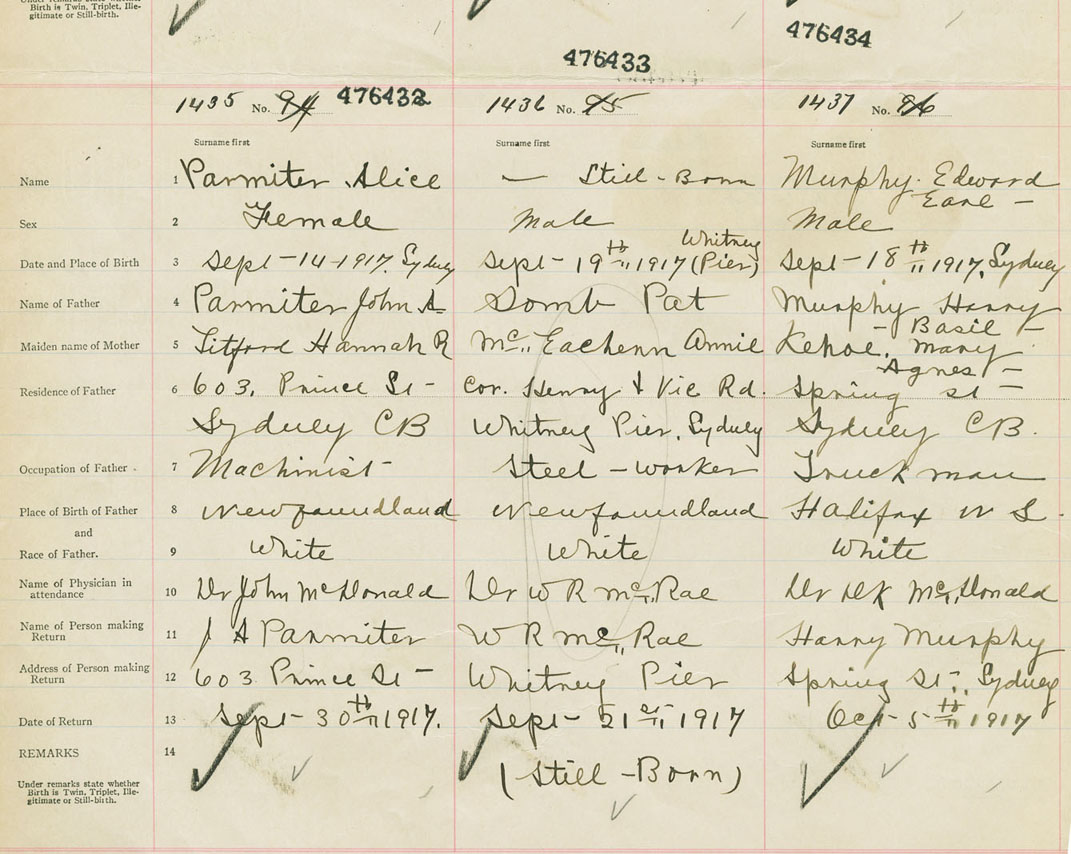 Under remarks state whether
Birth is Twin, Triplet, Ille-
gitimate or Still-birth.
476433
476434
1435 No. 94 476432
1436 No. 95
1437 No. 96
Surname first
Surname first
Surname first
Name 1 Parmiter Alice
— Still-Born
Murphy Edward
Earl —
Sex 2 Female
Male
Male
Date and Place of Birth 3 Sept-14-1917, Sydney
Sept-19th 1917 (Whitney Pier)
Sept-18th 1917, Sydney
Name of Father 4 Parmiter John A
Pat
Murphy Harry
Basil —
Maiden name of Mother 5 Titford Hannah R
McEachern Annie
Kehoe, Mary
Agnes —
Residence of Father 6 603, Prince St-
Cor. Henry & Vic Rd.
Spring St
Sydney CB
Whitney Pier, Sydney
Sydney CB.
Occupation of Father 7 Machinist
Steel-worker
Truckman
Place of Birth of Father 8 Newfoundland
Newfoundland
Halifax N S.
and
Race of Father. 9 White
White
White
Name of Physician in
attendance 10 Dr John McDonald
Dr W R McRae
Dr DK McDonald
Name of Person making
Return 11 J A Parmiter
W R McRae
Harry Murphy
Address of Person making
Return 12 603 Prince St-
Whitney Pier
Spring St-, Sydney
Date of Return 13 Sept-30th 1917.
Sept-21st 1917
Oct-5th 1917
REMARKS 14
(Still-Born)
Under remarks state whether
Birth is Twin, Triplet, Ille-
gitimate or Still-birth.